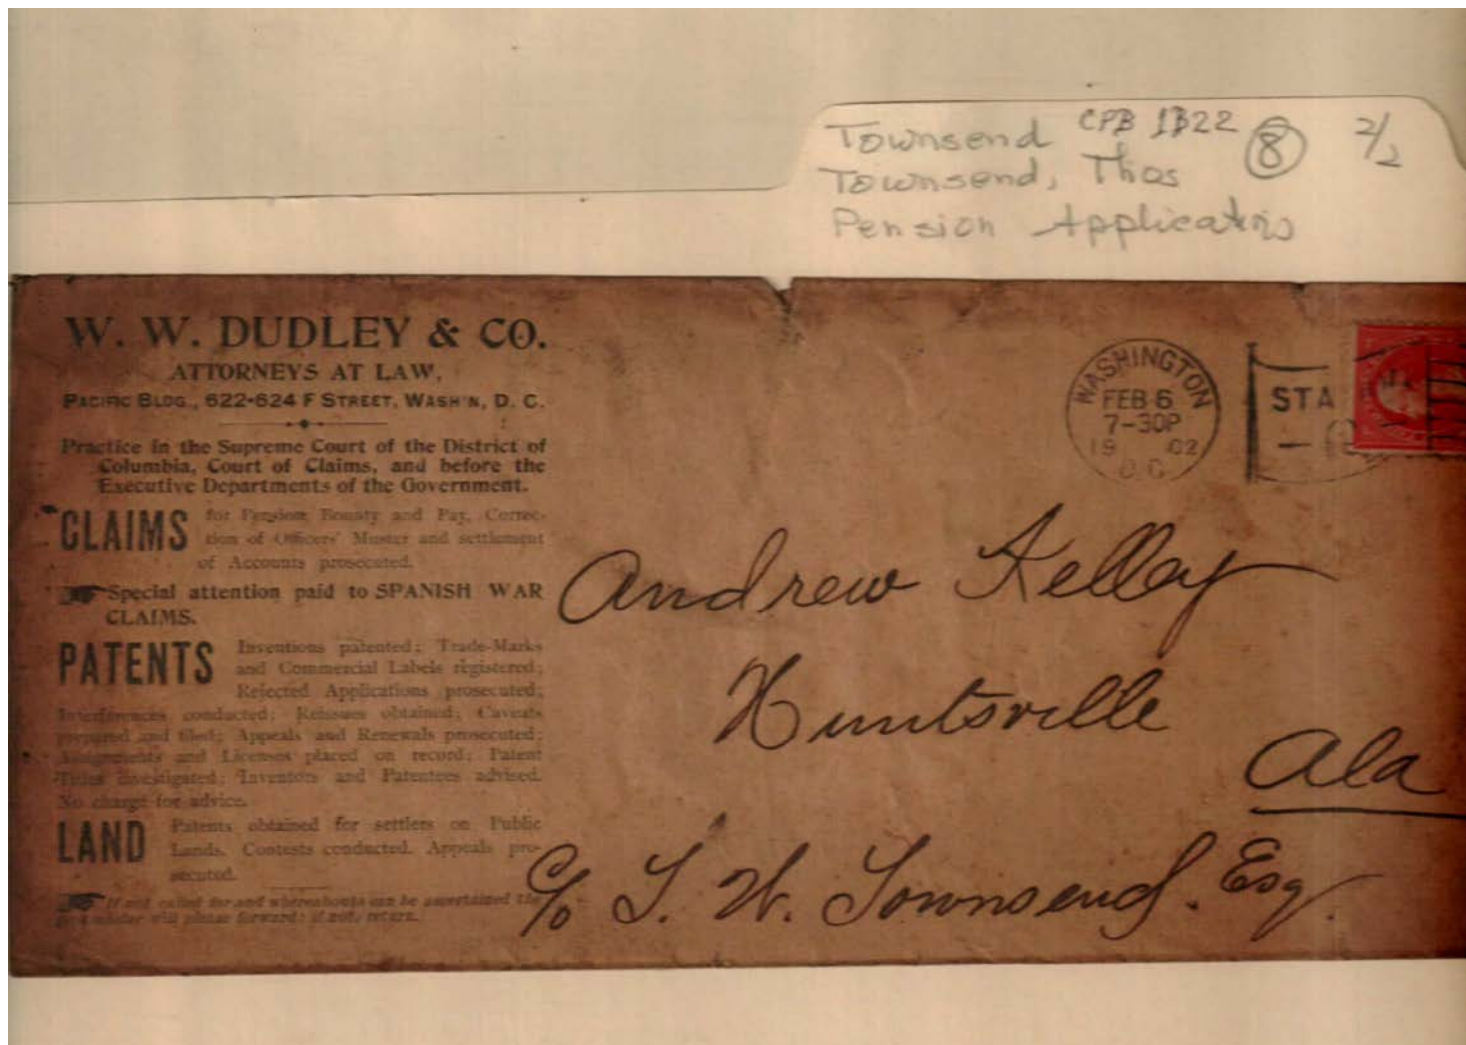 Townsend CPB 1B22 8 2/2
Townsend, Thos
Pension Applications
W. W. DUDLEY & CO.
ATTORNEYS AT LAW,
PACIFIC BLDG., 622-624 F STREET, WASH'N, D. C.
Practice in the Supreme Court of the District of
Columbia, Court of Claims, and before the
Executive Departments of the Government.
CLAIMS for Pension, Bounty and Pay, Correc-
tion of Officers' Muster and settlement
of Accounts prosecuted.
Special attention paid to SPANISH WAR
CLAIMS.
PATENTS Inventions patented; Trade-Marks
and Commercial Labels registered;
Rejected Applications prosecuted;
Interferences conducted; Reissues obtained; Caveats
prepared and filed; Appeals and Renewals prosecuted;
Assignments and Licenses placed on record; Patent
Titles investigated; Inventors and Patentees advised.
No charge for advice.
LAND Patents obtained for settlers on Public
Lands. Contests conducted. Appeals pro-
secuted.
If not called for and whereabouts can be ascertained the
postmaster will please forward; if not, return.
WASHINGTON
FEB 6
7-30P
19 02
D.C.
STA
Andrew Kelley
Huntsville
Ala
c/o T. W. Townsend. Esq.